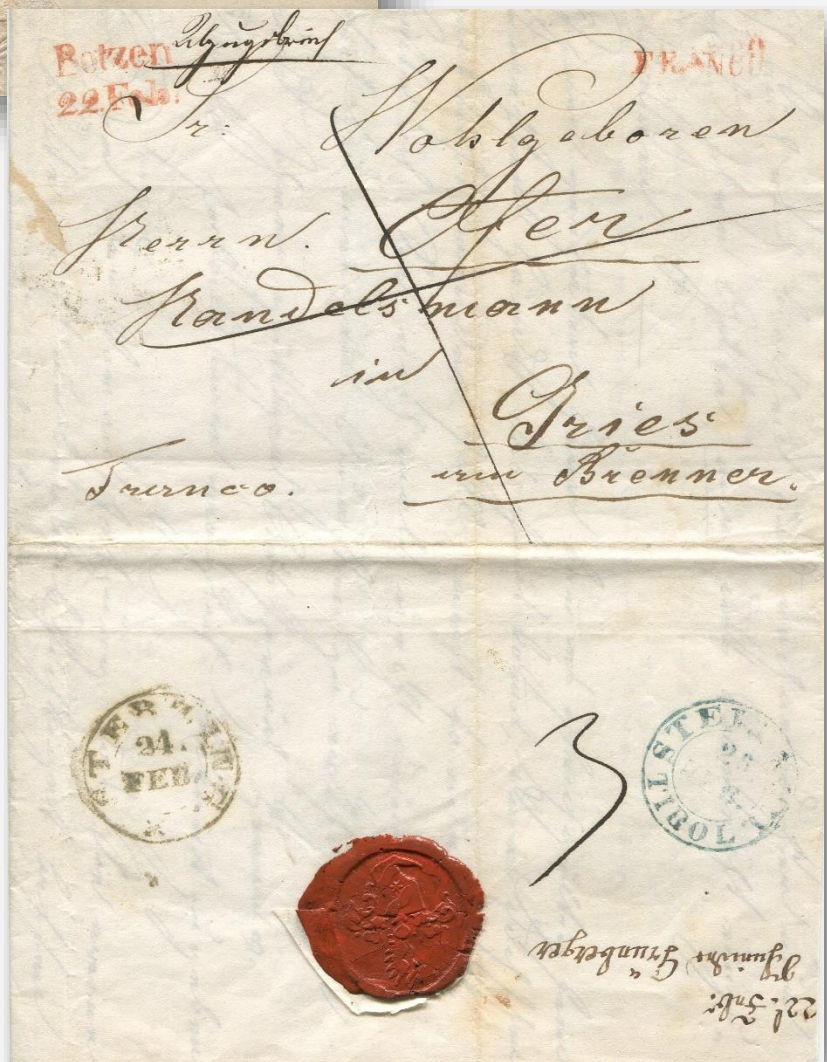 Botzen
22 Feb:
FRANCO
Sr: Wohlgeboren
Herrn. Ofer
Handelsmann
in
Gries
am Brenner.
Franco.
STERZING
24.
FEB.
3
STEINACH
TIROL
22t. Feb:
Grünberger